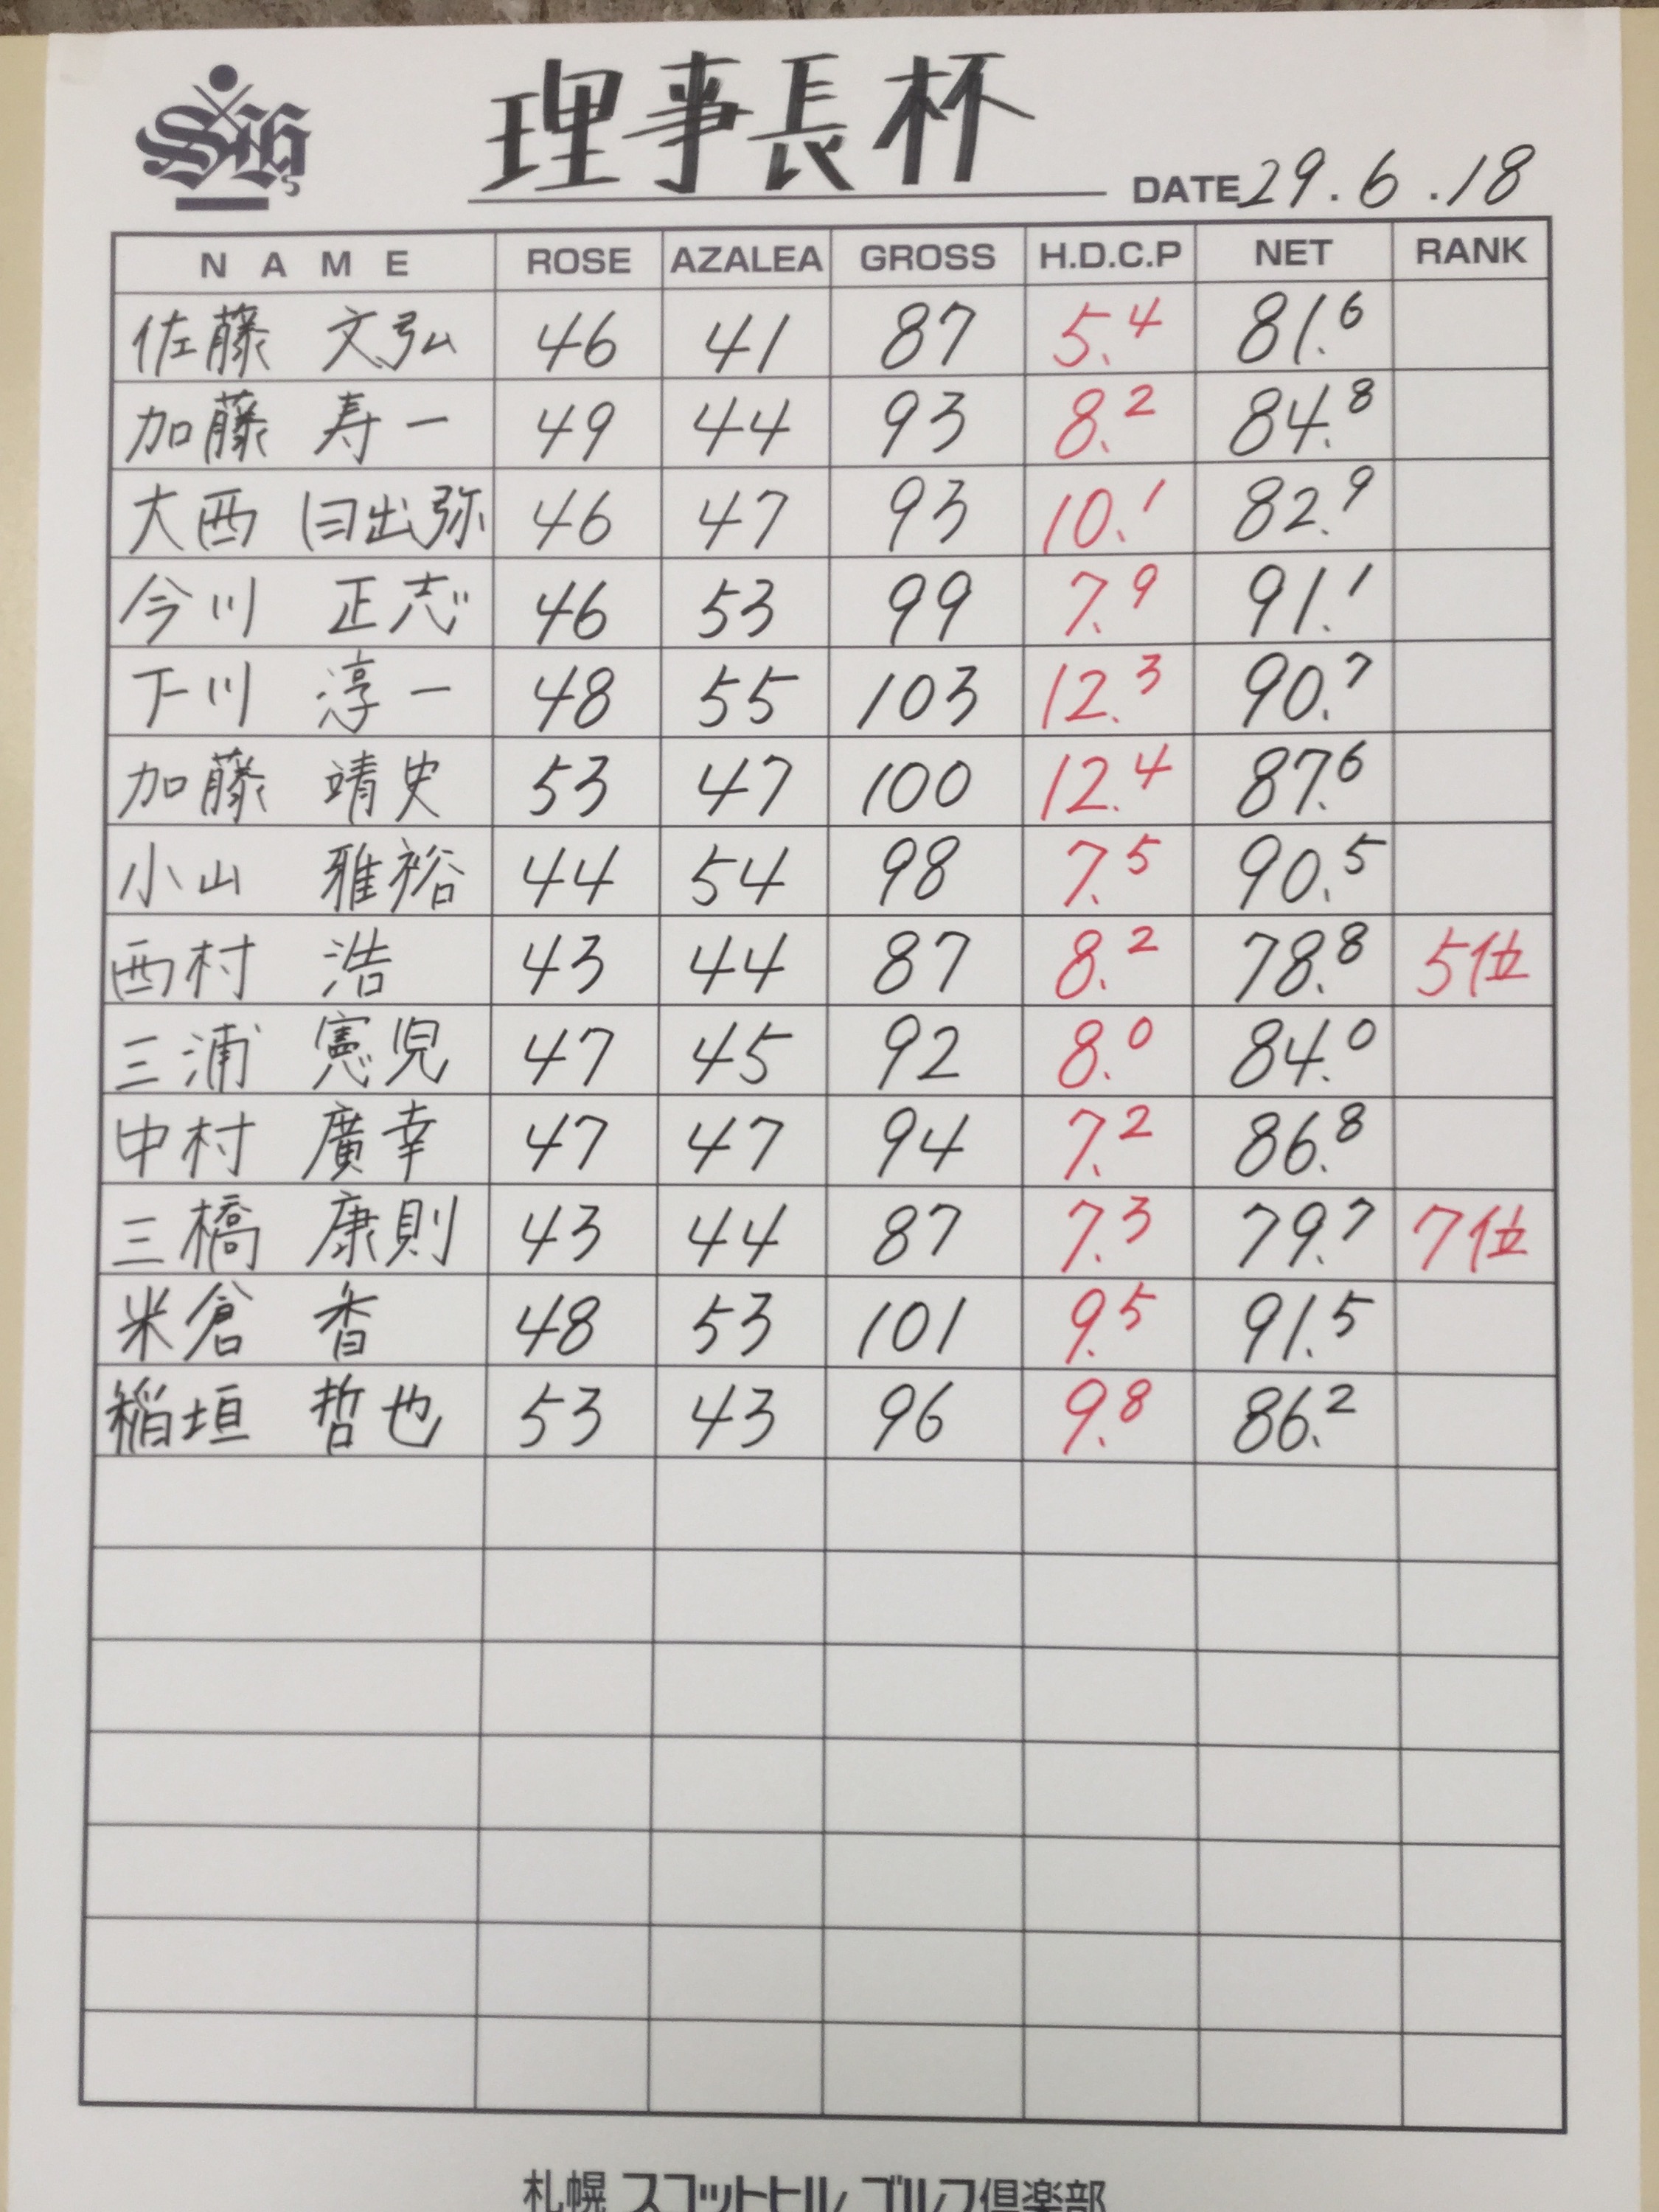 理事長杯
DATE 29.6.18
NAME ROSE AZALEA GROSS H.D.C.P NET RANK
佐藤 文弘 46 41 87 5.4 81.6
加藤 寿一 49 44 93 8.2 84.8
大西 日出弥 46 47 93 10.1 82.9
今川 正志 46 53 99 7.9 91.1
下川 淳一 48 55 103 12.3 90.7
加藤 靖史 53 47 100 12.4 87.6
小山 雅裕 44 54 98 7.5 90.5
西村 浩 43 44 87 8.2 78.8 5位
三浦 憲児 47 45 92 8.0 84.0
中村 廣幸 47 47 94 7.2 86.8
三橋 康則 43 44 87 7.3 79.7 7位
米倉 香 48 53 101 9.5 91.5
稲垣 哲也 53 43 96 9.8 86.2
札幌 スコットヒル ゴルフ倶楽部